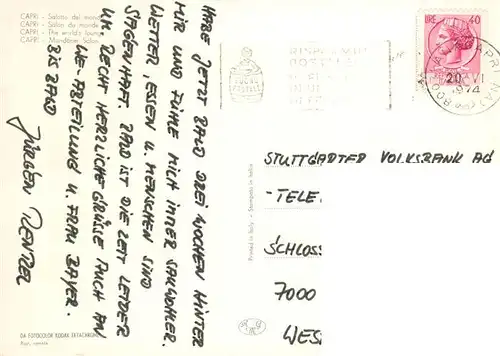 CAPRI - Salotto del mondo
CAPRI - Salon du monde
CAPRI - The world's lounge
CAPRI - Mondäner Salon
HABE JETZT BALD DREI WOCHEN HINTER
MIR UND FÜHLE MICH IMMER SAUWOHLER.
WETTER, ESSEN U. MENSCHEN SIND
SAGENHAFT. BALD IST DIE ZEIT LEIDER
UM. RECHT HERRLICHE GRÜSSE AUCH AN
WE-ABTEILUNG U. FRAU BAYER.
BIS BALD
JÜRGEN
DA FOTOCOLOR KODAK EKTACHROME
Printed in Italy - Stampato in Italia
LIRE 40
CAPRI (NA)
20 VI
1974
STUTTGARTER VOLKSBANK AG
-TELE
SCHLOSS
7000
WES